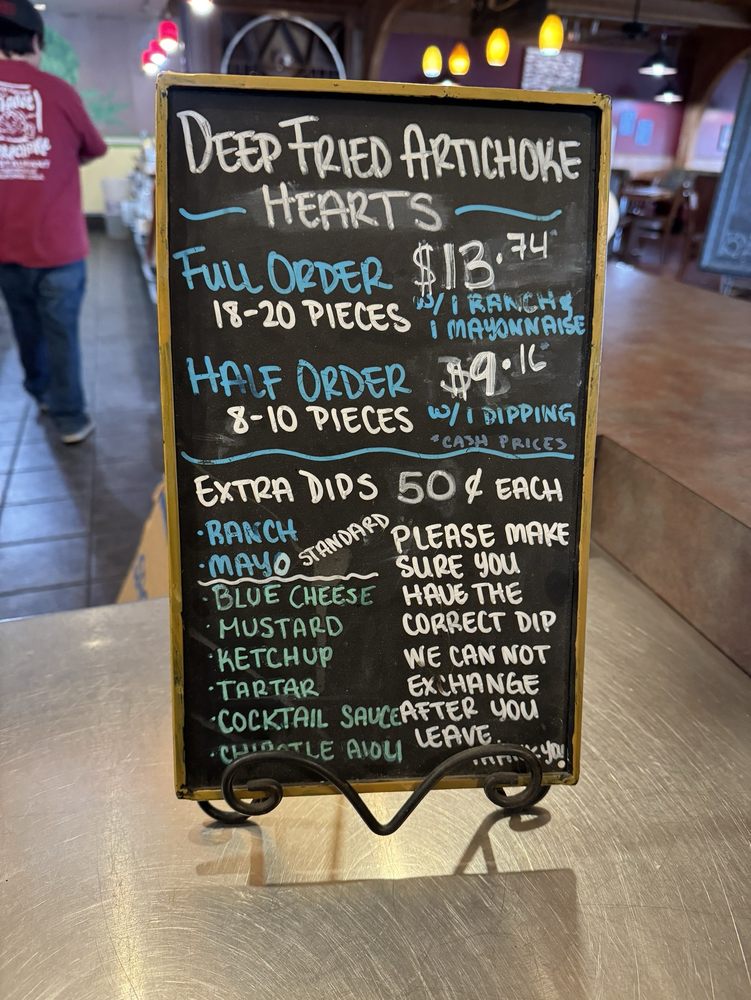 DEEP FRIED ARTICHOKE
HEARTS
FULL ORDER $13.74
18-20 PIECES W/ 1 RANCH &
1 MAYONNAISE
HALF ORDER $9.16
8-10 PIECES W/ 1 DIPPING
*CASH PRICES
EXTRA DIPS 50¢ EACH
·RANCH
·MAYO STANDARD
·BLUE CHEESE
·MUSTARD
·KETCHUP
·TARTAR
·COCKTAIL SAUCE
·CHIPOTLE AIOLI
PLEASE MAKE
SURE YOU
HAVE THE
CORRECT DIP
WE CAN NOT
EXCHANGE
AFTER YOU
LEAVE.
THANK YOU!